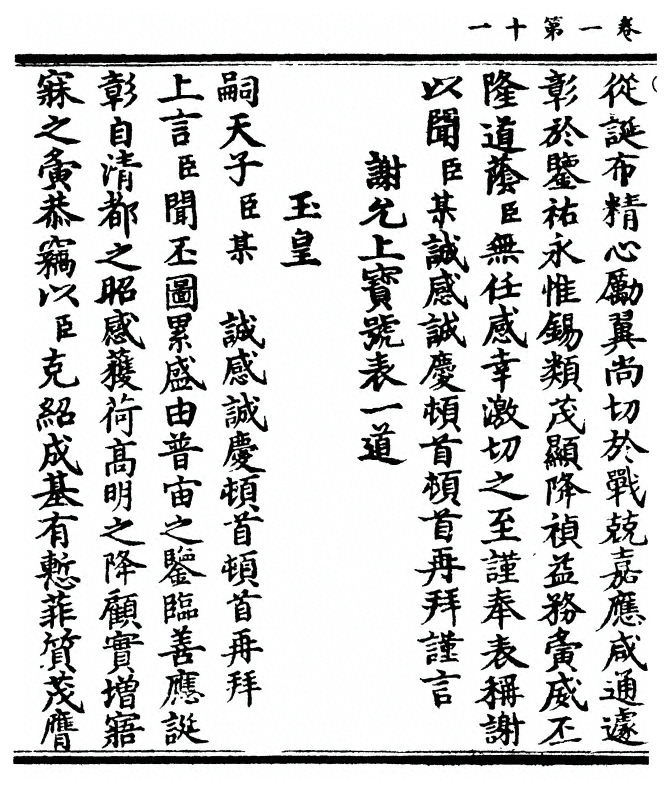 卷一第十一
從誕布精心勵翼尚切於戰兢嘉應咸通遽
彰於鑒祐永惟錫類茂顯降禎益務夤威丕
隆道蔭臣無任感幸激切之至謹奉表稱謝
以聞臣某誠感誠慶頓首頓首再拜謹言
謝允上寶號表一道
玉皇
嗣天子臣某　誠感誠慶頓首頓首再拜
上言臣聞丕圖累盛由普宙之鑒臨善應誕
彰自清都之昭感蒦荷高明之降顧實增寤
寐之夤恭竊以臣克紹成基有慙菲質茂膺